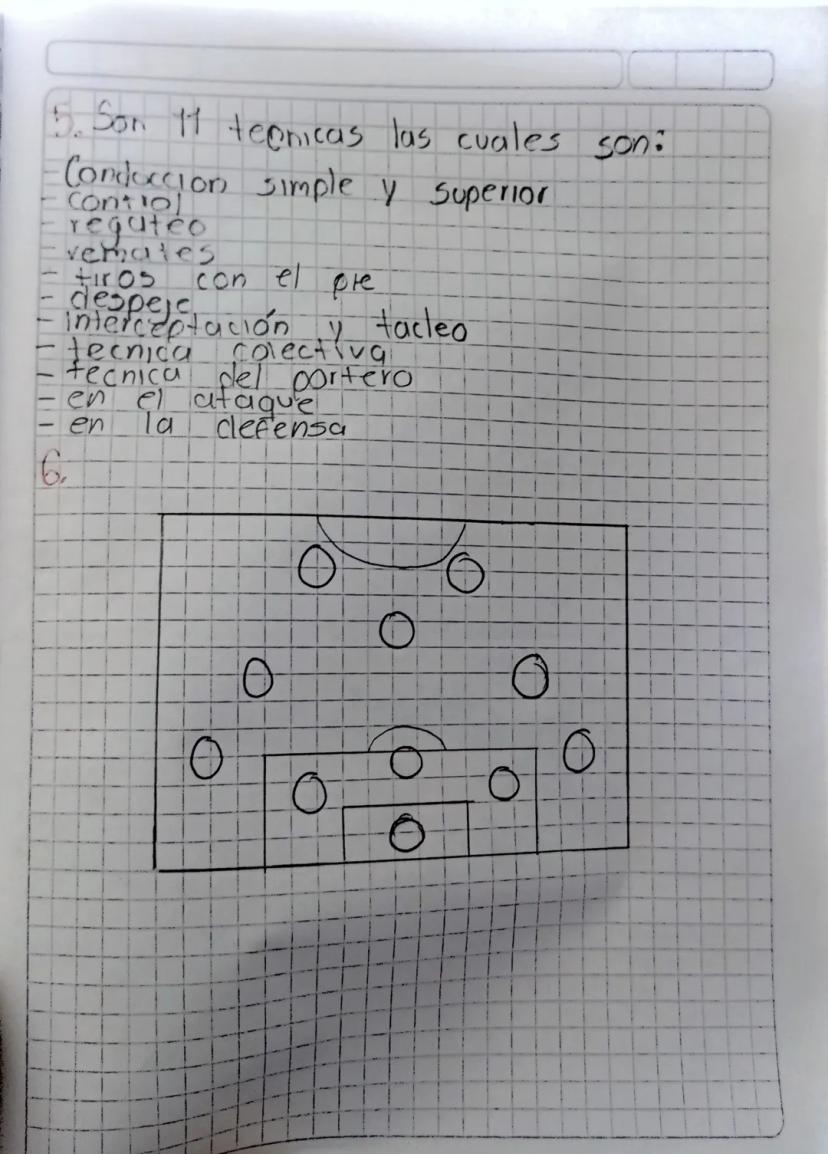 5. Son 11 tecnicas las cuales son:
- Conduccion simple y superior
- control
- regateo
- remates
- tiros con el pie
- despeje
- interceptación y tacleo
- tecnica colectiva
- tecnica del portero
- en el ataque
- en la defensa
6.